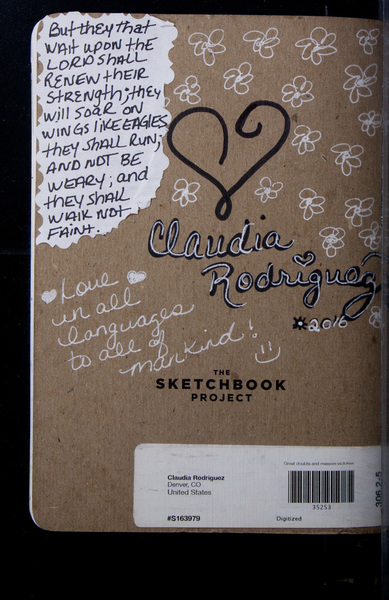 But they that
WAIT UPON THE
LORD SHALL
RENEW THEIR
STRENGTH; they
will SOAR ON
WINGS like EAGLES
they SHALL RUN;
AND NOT BE
WEARY; and
they SHALL
WALK NOT
FAINT.
Claudia
Rodriguez
2016
Love
in all
languages
to all of
mankind!
THE
SKETCHBOOK
PROJECT
Great doubts and massive victories
Claudia Rodriguez
Denver, CO
United States
35253
#S163979
Digitized
306.2-5